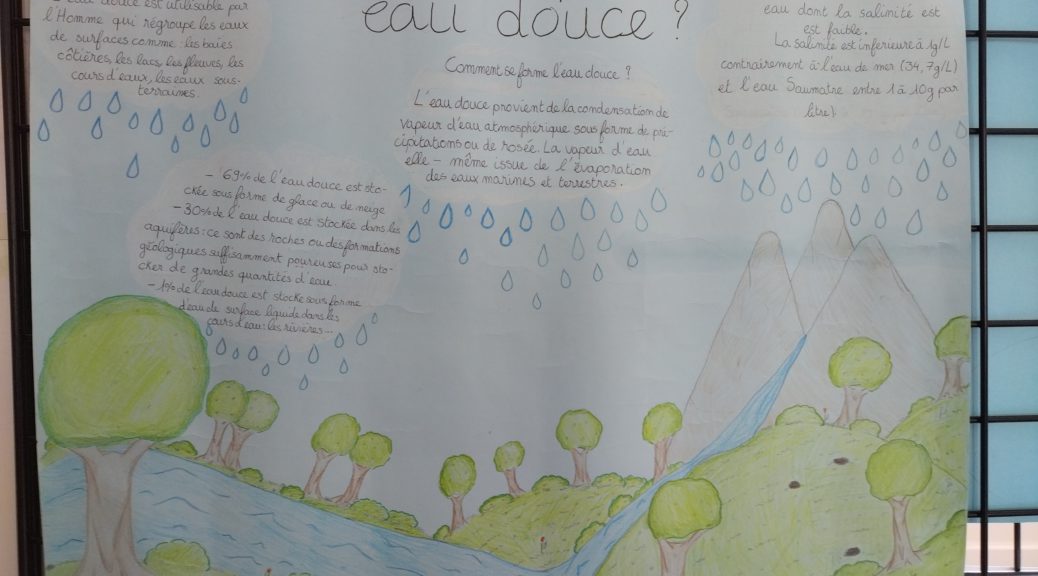 eau douce ?
eau douce est utilisable par
l'Homme qui régroupe les eaux
de surfaces comme : les baies
côtières, les lacs, les fleuves, les
cours d'eaux, les eaux sous-
terraines.
Comment se forme l'eau douce ?
L'eau douce provient de la condensation de
vapeur d'eau atmosphérique sous forme de pré-
cipitations ou de rosée. La vapeur d'eau
elle - même issue de l'évaporation
des eaux marines et terrestres.
eau dont la salinité est
est faible.
La salinité est inférieure à 1g/L
contrairement à l'eau de mer (34,7g/L)
et l'eau Saumatre entre 1 à 10g par
litre)
- 69% de l'eau douce est sto-
ckée sous forme de glace ou de neige
- 30% de l'eau douce est stockée dans les
aquifères : ce sont des roches ou des formations
géologiques suffisamment poureuses pour sto-
cker de grandes quantités d'eau.
- 1% de l'eau douce est stocke sous forme
d'eau de surface liquide dans les
cours d'eau : les rivières...